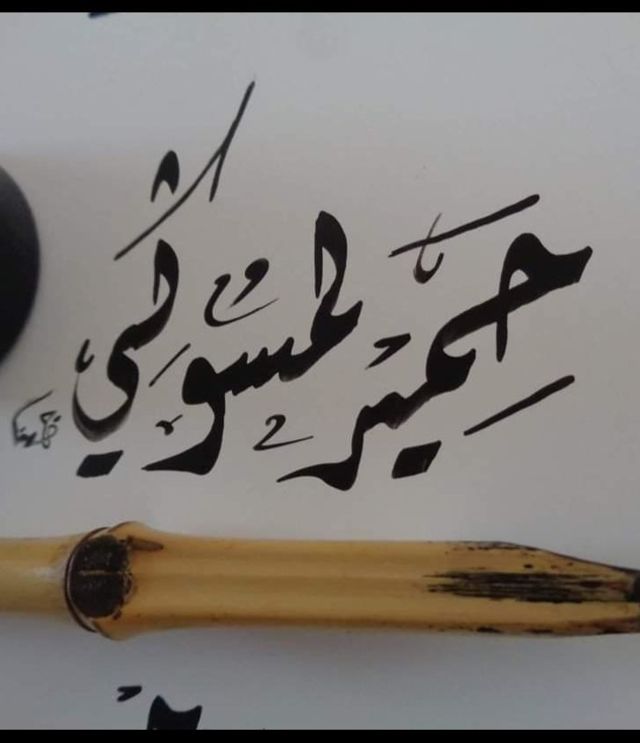 حمير لمسوكي